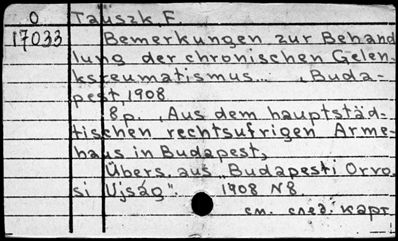 O Tauszk, F.
17033 Bemerkungen zur Behand
lung der chronischen Gelen-
ksreumatismus... , Buda-
pest, 1908
8 p. , Aus dem hauptstäd-
tischen rechtsufrigen Arme-
haus in Budapest,
Übers. aus „Budapesti Orvo.
si Ujság". 1908 N8.
см. след. карт